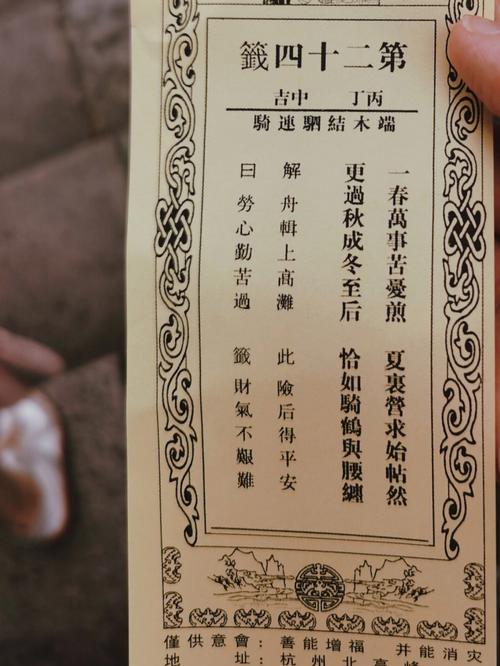 第二十四籤
丙丁 中吉
端木結駟連騎
一春萬事苦憂煎 夏裏營求始帖然
更過秋成冬至后 恰如騎鶴與腰纏
解舟輯上高灘 此險后得平安
曰勞心勤苦過 籤財氣不艱難
僅供意會：善能增福 并能消灾
地址：杭州北高峰